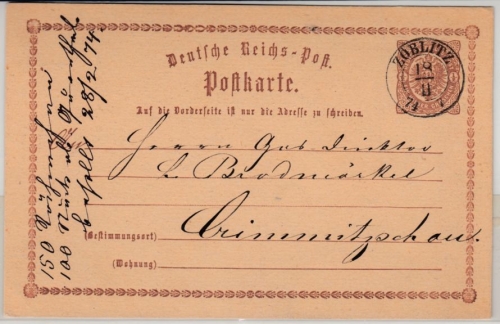 Deutsche Reichs-Post.
Postkarte.
Auf die Vorderseite ist nur die Adresse zu schreiben.
ZÖBLITZ
18
II
74
An
Herrn Gas Direktor
L Brodmärkel
Crimmitzschau.
(Bestimmungsort)
(Wohnung)
150
100 Stück
bestellt 28/2 74.